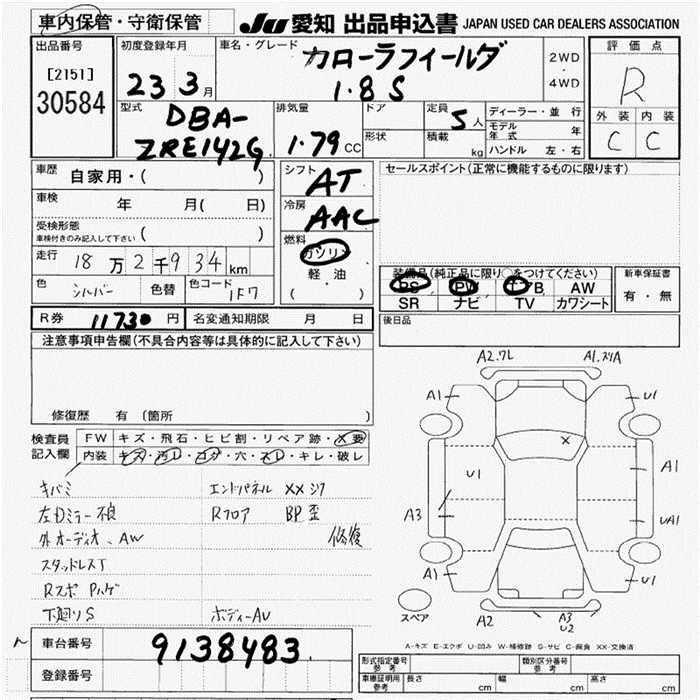 車内保管・守衛保管
JU 愛知 出品申込書 JAPAN USED CAR DEALERS ASSOCIATION
出品番号
[2151]
30584
初度登録年月
23 3月
車名・グレード
カローラフィールダ
1.8 S
2WD
・
4WD
評価点
R
外装 内装
C C
型式
DBA-
ZRE142G
排気量
1.79 CC
ドア
形状
定員
5人
積載
kg
ディーラー・並行
モデル年式 年
ハンドル 左・右
車歴
自家用・( )
車検
年 月( 日)
受検形態
車検付きのみ記入して下さい ( )
走行
18万2千934km
色
シルバー
色替
色コード
1F7
シフト
AT
冷房
AAC
燃料
ガソリン
軽油
( )
セールスポイント(正常に機能するものに限ります)
装備品(純正品に限り○をつけてください)
PS PW エアB AW
SR ナビ TV カワシート
新車保証書
有・無
後日品
R券 11730 円
名変通知期限 月 日
注意事項申告欄(不具合内容等は具体的に記入して下さい)
修復歴 有 (箇所 )
検査員
記入欄
FW キズ・飛石・ヒビ割・リペア跡・X要
内装 キズ・汚レ・コゲ・穴・スレ・キレ・破レ
キバミ
左Dミラー不良
外オーディオ、AW
スタッドレス
Rスポ Pハゲ
下廻りS
エンドパネル XXシワ
Rフロア BP歪
修復
ボディーAU
A2.ワレ
A1.スリA
A1
U1
X
U1
A1
A3
UA1
A1
U1
スペア
A2
A3
U2
A-キズ E-エクボ U-凹み W-補修跡 S-サビ C-腐食 XX-交換済
車台番号
9138483
登録番号
形式指定番号
参考
類別区分番号
参考
車庫証明用
参考
長さ cm
幅 cm
高さ cm